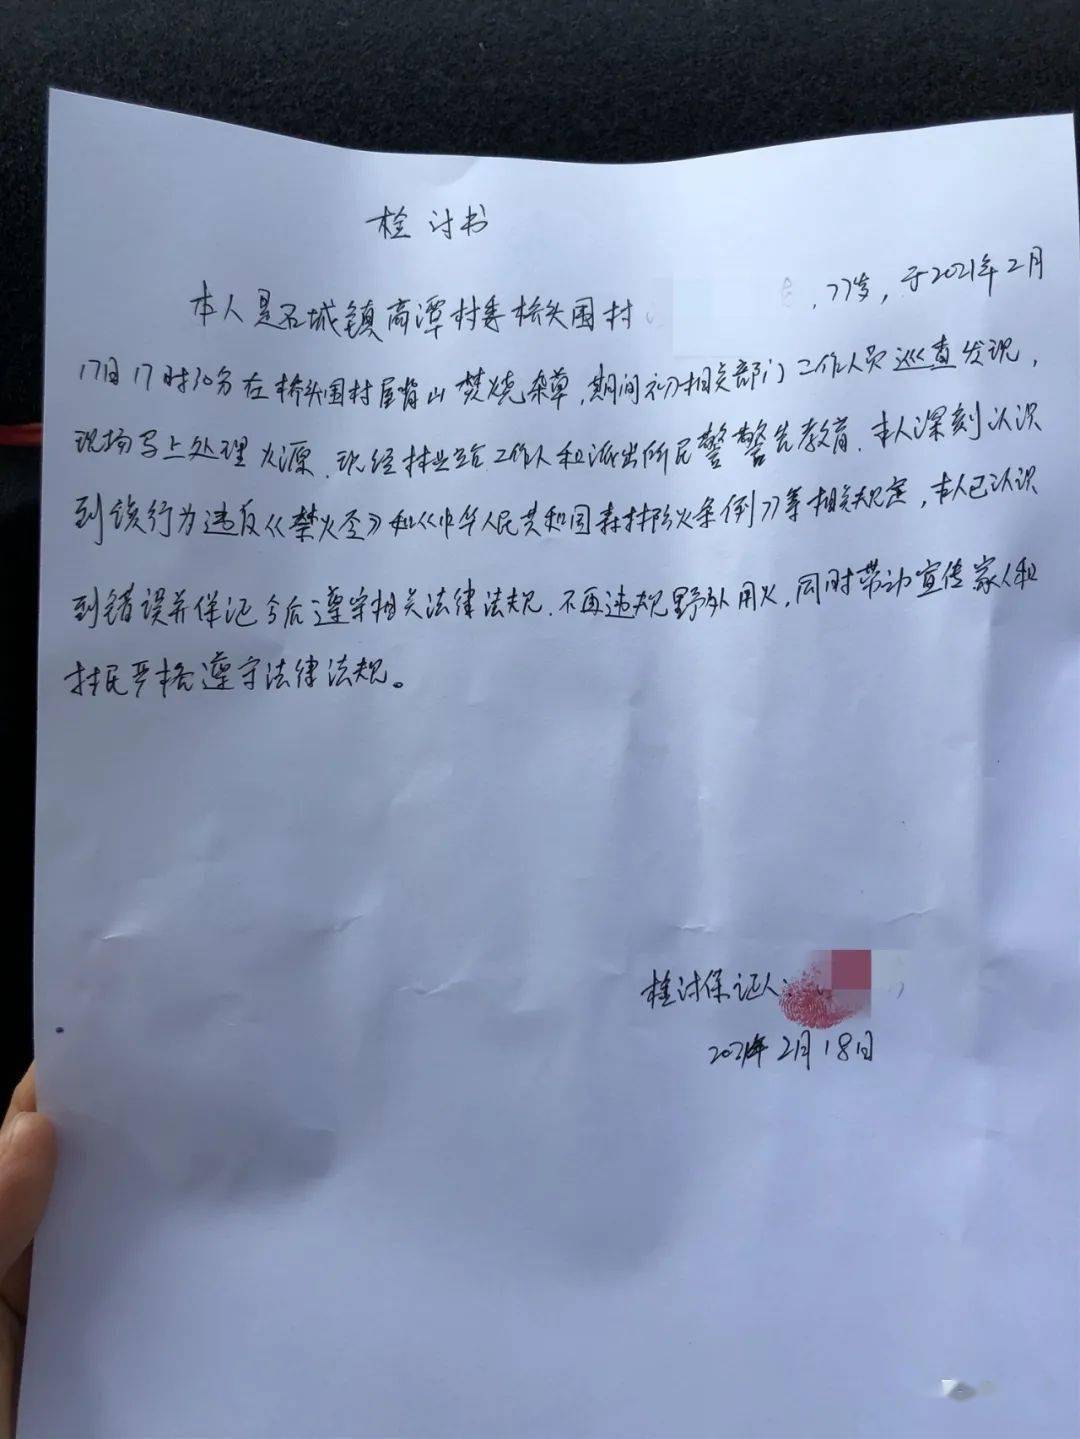 检讨书
本人是石城镇高潭村委桥头围村 ，77岁，于2021年2月
17日17时30分在桥头围村屋背山焚烧杂草，期间初相关部门工作人员巡查发现，
现场马上处理火源．现经林业站工作人和派出所民警警告教育．本人深刻认识
到该行为违反《禁火令》和《中华人民共和国森林防火条例》等相关规定，本人已认识
到错误并保证今后遵守相关法律法规．不再违规野外用火，同时带动宣传家人和
村民严格遵守法律法规。
检讨保证人：
2021年2月18日